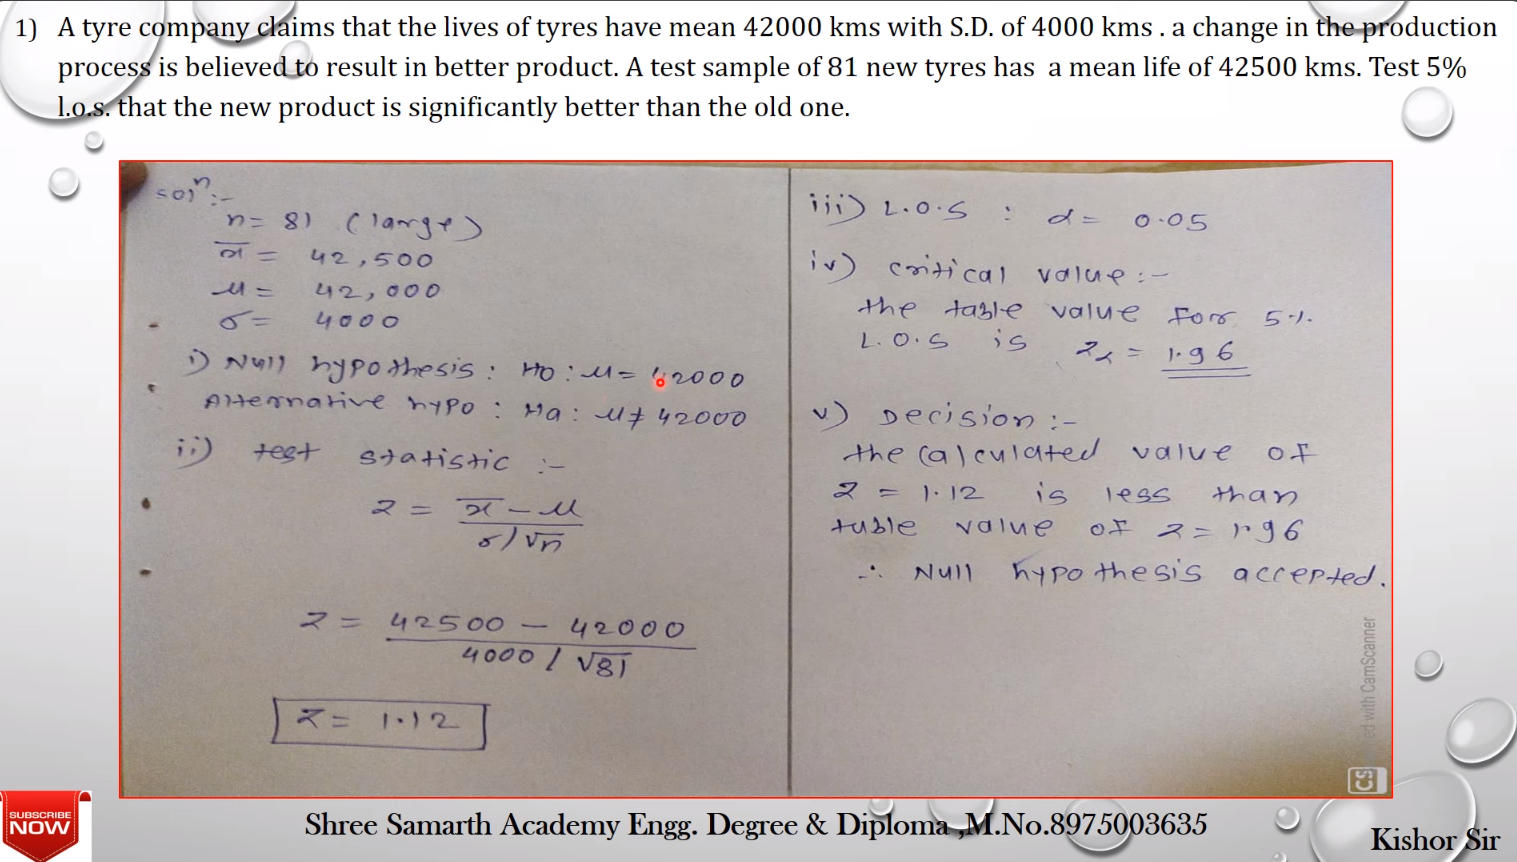 1) A tyre company claims that the lives of tyres have mean 42000 kms with S.D. of 4000 kms . a change in the production
process is believed to result in better product. A test sample of 81 new tyres has a mean life of 42500 kms. Test 5%
l.o.s. that the new product is significantly better than the old one.
solⁿ :-
n = 81 (large)
x̄ = 42,500
μ = 42,000
σ = 4000
i) Null hypothesis : H0 : μ = 42000
Alternative hypo : Ha : μ ≠ 42000
ii) test statistic :-
z = x̄ - μ / σ/√n
z = 42500 - 42000 / 4000 / √81
z = 1.12
iii) L.O.S : α = 0.05
iv) critical value :-
the table value for 5%
L.O.S is zα = 1.96
v) Decision :-
the calculated value of
z = 1.12 is less than
table value of z = 1.96
∴ Null hypothesis accepted.
ed with CamScanner
CS
SUBSCRIBE
NOW
Shree Samarth Academy Engg. Degree & Diploma ,M.No.8975003635
Kishor Sir